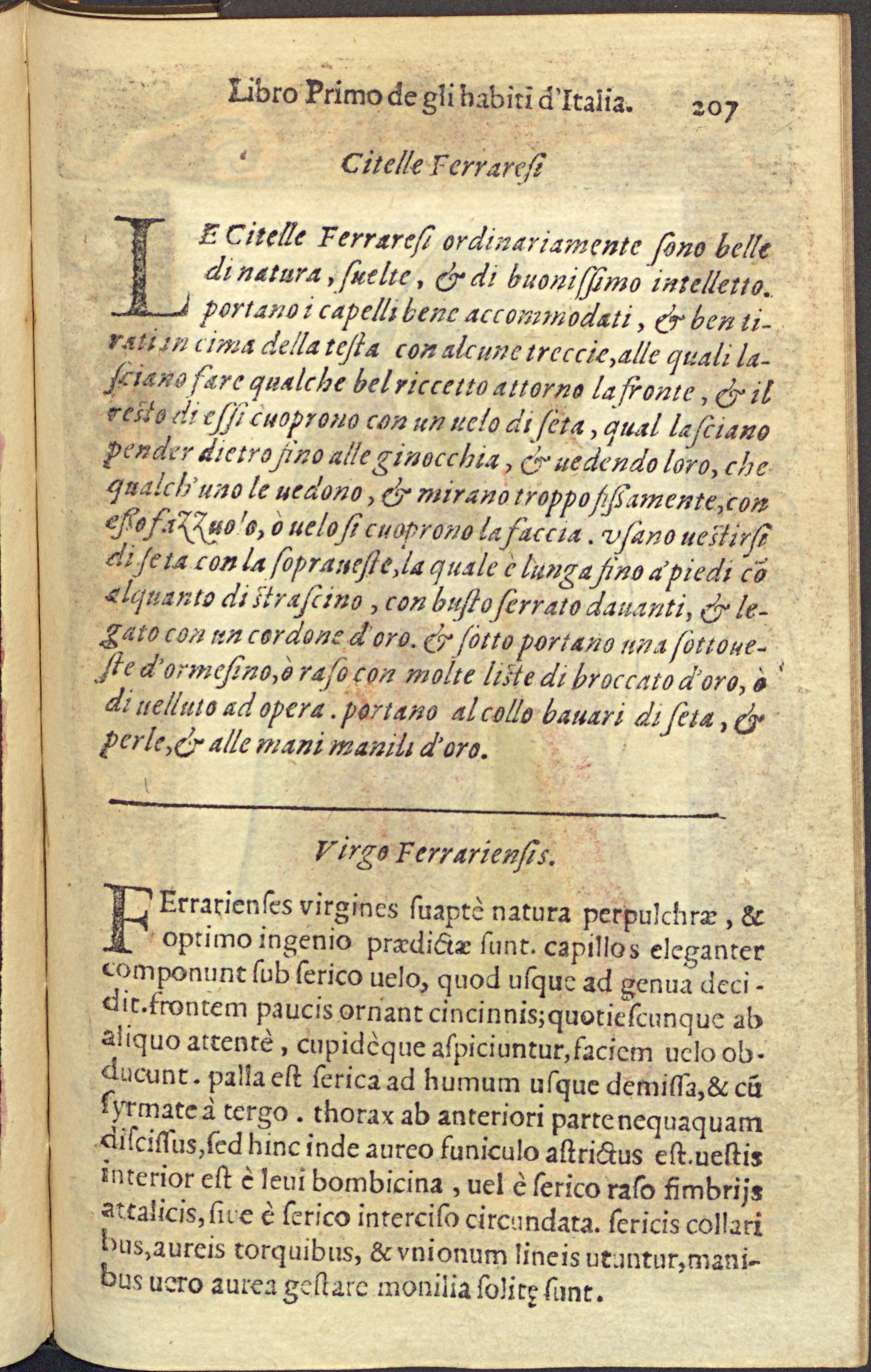 Libro Primo de gli habiti d'Italia. 207
Citelle Ferraresi
LE Citelle Ferraresi ordinariamente sono belle
di natura, suelte, & di buonissimo intelletto.
portano i capelli bene accommodati, & ben ti-
rati in cima della testa con alcune treccie, alle quali la-
sciano fare qualche bel riccetto attorno la fronte, & il
resto di essi cuoprono con un uelo di seta, qual lasciano
pender dietro fino alle ginocchia, & uedendo loro, che
qualch'uno le uedono, & mirano troppo fißamente, con
eßo fazzuolo, ò uelo si cuoprono la faccia. vsano uestirsi
di seta con la sopraueste, la quale è lunga fino a' piedi cō
alquanto di strascino, con busto serrato dauanti, & le-
gato con un cordone d'oro. & sotto portano una sottoue-
ste d'ormesino, ò raso con molte liste di broccato d'oro, ò
di uelluto ad opera. portano al collo bauari di seta, &
perle, & alle mani manili d'oro.
Virgo Ferrariensis.
FErrarienses virgines suaptè natura perpulchræ, &
optimo ingenio prædictæ sunt. capillos eleganter
componunt sub serico uelo, quod usque ad genua deci-
dit. frontem paucis ornant cincinnis; quotiescunque ab
aliquo attentè, cupidèque aspiciuntur, faciem uelo ob-
ducunt. palla est serica ad humum usque demissa, & cū
syrmate à tergo. thorax ab anteriori parte nequaquam
discissus, sed hinc inde aureo funiculo astrictus est. uestis
interior est è leui bombicina, uel è serico raso fimbrijs
attalicis, siue è serico interciso circundata. sericis collari
bus, aureis torquibus, & vnionum lineis utuntur, mani-
bus uero aurea gestare monilia solitę sunt.